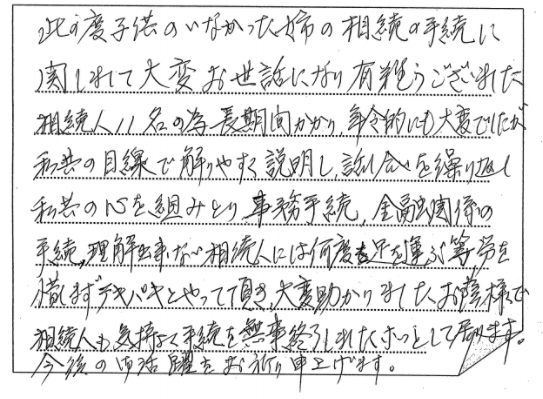 此の度子供のいなかった姉の相続の手続に
関しまして大変お世話になり有難うございました
相続人11名の為長期間かかり、年令的にも大変でしたが
私共の目線で解りやすく説明し、話し合いを繰り返し
私共の心を組みとり事務手続、金融関係の
手続、理解出来ない相続人には何度も足を運ぶ等労を
惜しまずテキパキとやって頂き、大変助かりましたお蔭様で
相続人も気持よく手続を無事終了しましたホッとして居ります。
今後の御活躍をお祈り申上げます。